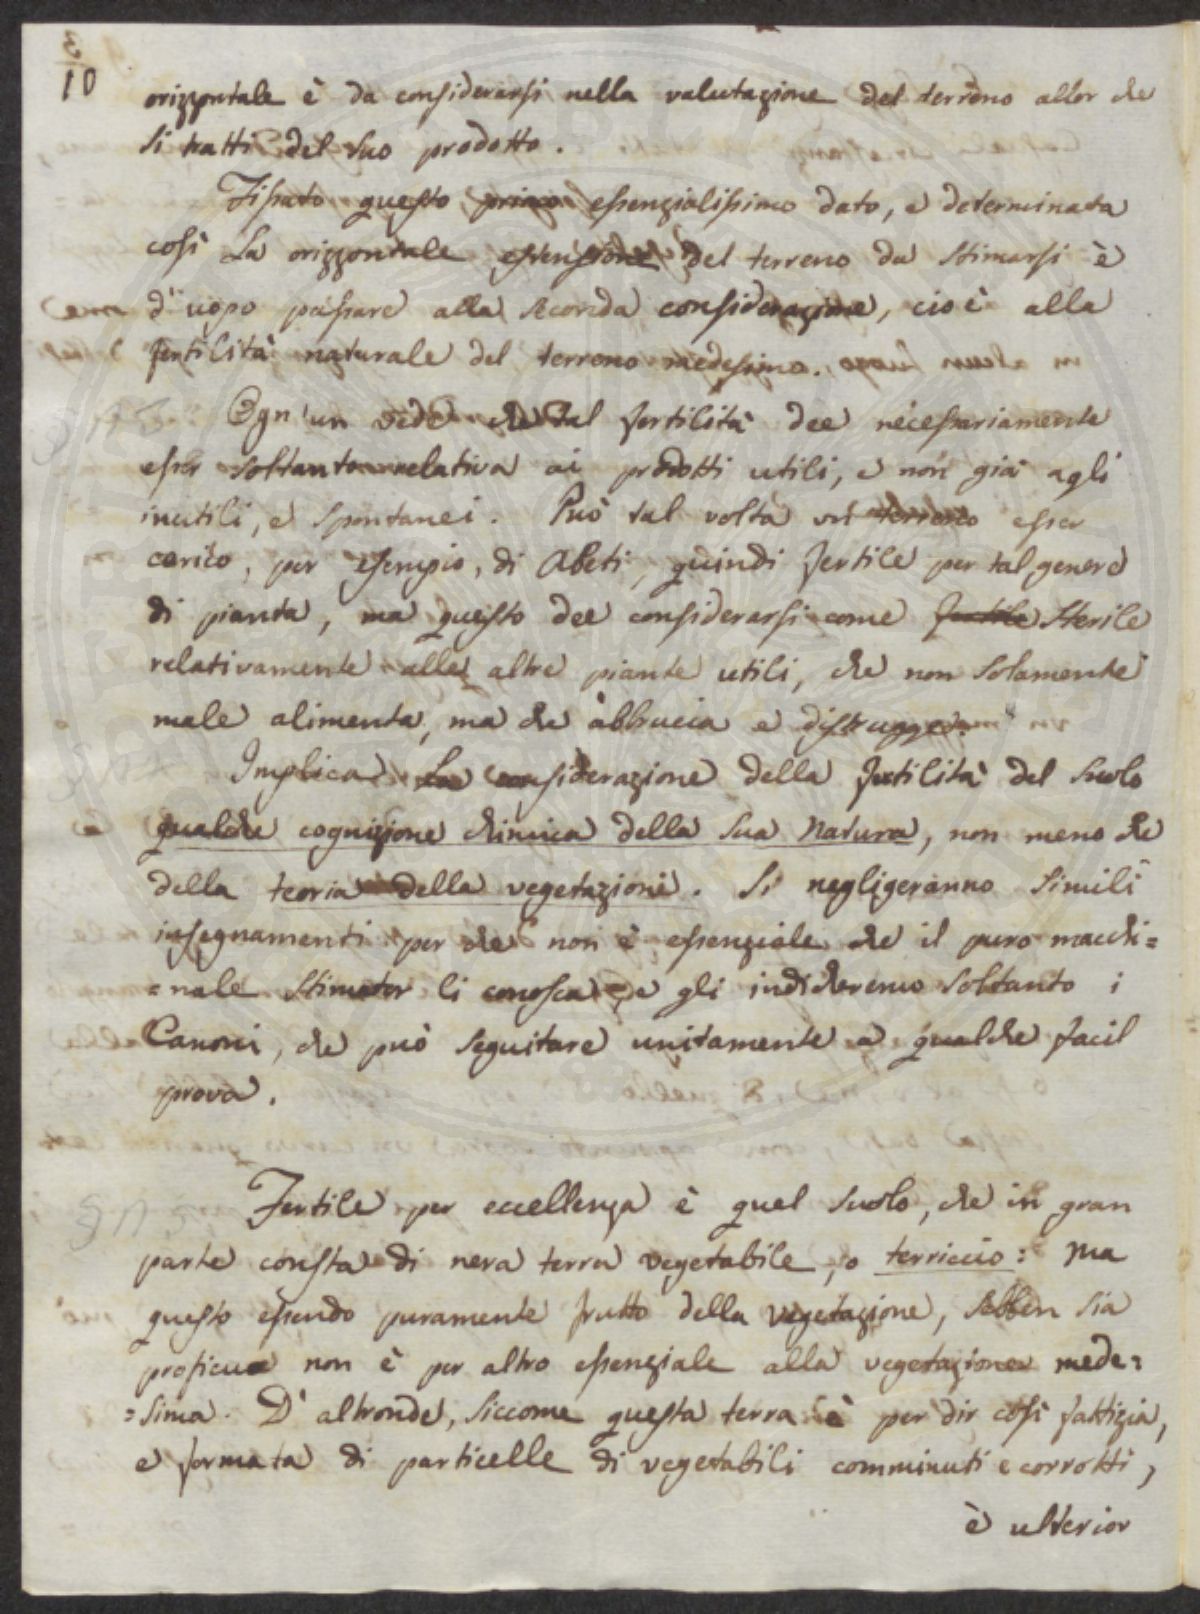 3
10
orizzontale è da considerarsi nella valutazione del terreno allor che
si tratti del suo prodotto.
Fissato questo primo essenzialissimo dato, e determinata
così la orizzontale estensione del terreno da stimarsi è
d'uopo passare alla seconda considerazione, cioè alla
fertilità naturale del terreno medesimo.
Ogn'un vede che tal fertilità dee necessariamente
esser soltanto relativa ai prodotti utili, e non già agli
inutili, e spontanei. Può tal volta un terreno esser
carico, per esempio, di Abeti, quindi fertile per tal genere
di pianta, ma questo dee considerarsi come fertile sterile
relativamente alle altre piante utili, che non solamente
male alimenta, ma che abbrucia e distrugge.
Implica la considerazione della fertilità del suolo
qualche cognizione chimica della sua natura, non meno che
della teoria della vegetazione. Si negligeranno simili
insegnamenti per che non è essenziale che il puro macchi=
=nale stimator li conosca, e gli indicheremo soltanto i
Canoni, che può seguitare unitamente a qualche facil
prova.
Fertile per eccellenza è quel suolo, che in gran
parte consta di nera terra vegetabile, o terriccio: ma
questo essendo puramente frutto della vegetazione, sebben sia
proficua non è per altro essenziale alla vegetazione mede=
=sima. D'altronde, siccome questa terra è per dir così fattizia,
e formata di particelle di vegetabili comminuti e corrotti,
è ulterior